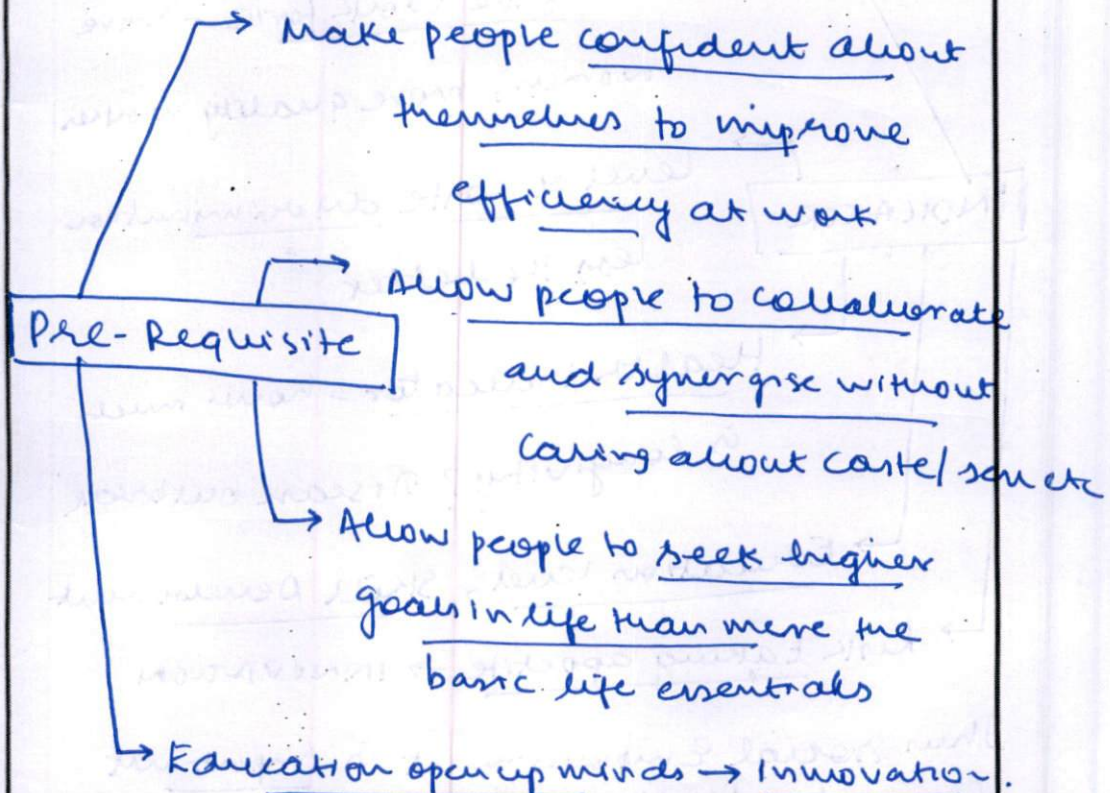 Make people confident about
themselves to improve
efficiency at work
Allow people to collaborate
Pre-Requisite
and synergise without
caring about caste/sex etc
Allow people to seek higher
goals in life than mere the
basic life essentials
Education open up minds → Innovation.